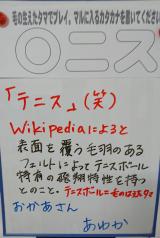 毛の生えたタマでプレイ。マルに入るカタカナを書いてください
〇ニス
「テニス」(笑)
Wikipediaによると
表面を覆う毛羽のある
フェルトによってテニスボール
特有の飛翔特性を持つ
とのこと。テニスボール=毛のはえたタマ
おかあさん
あゆか